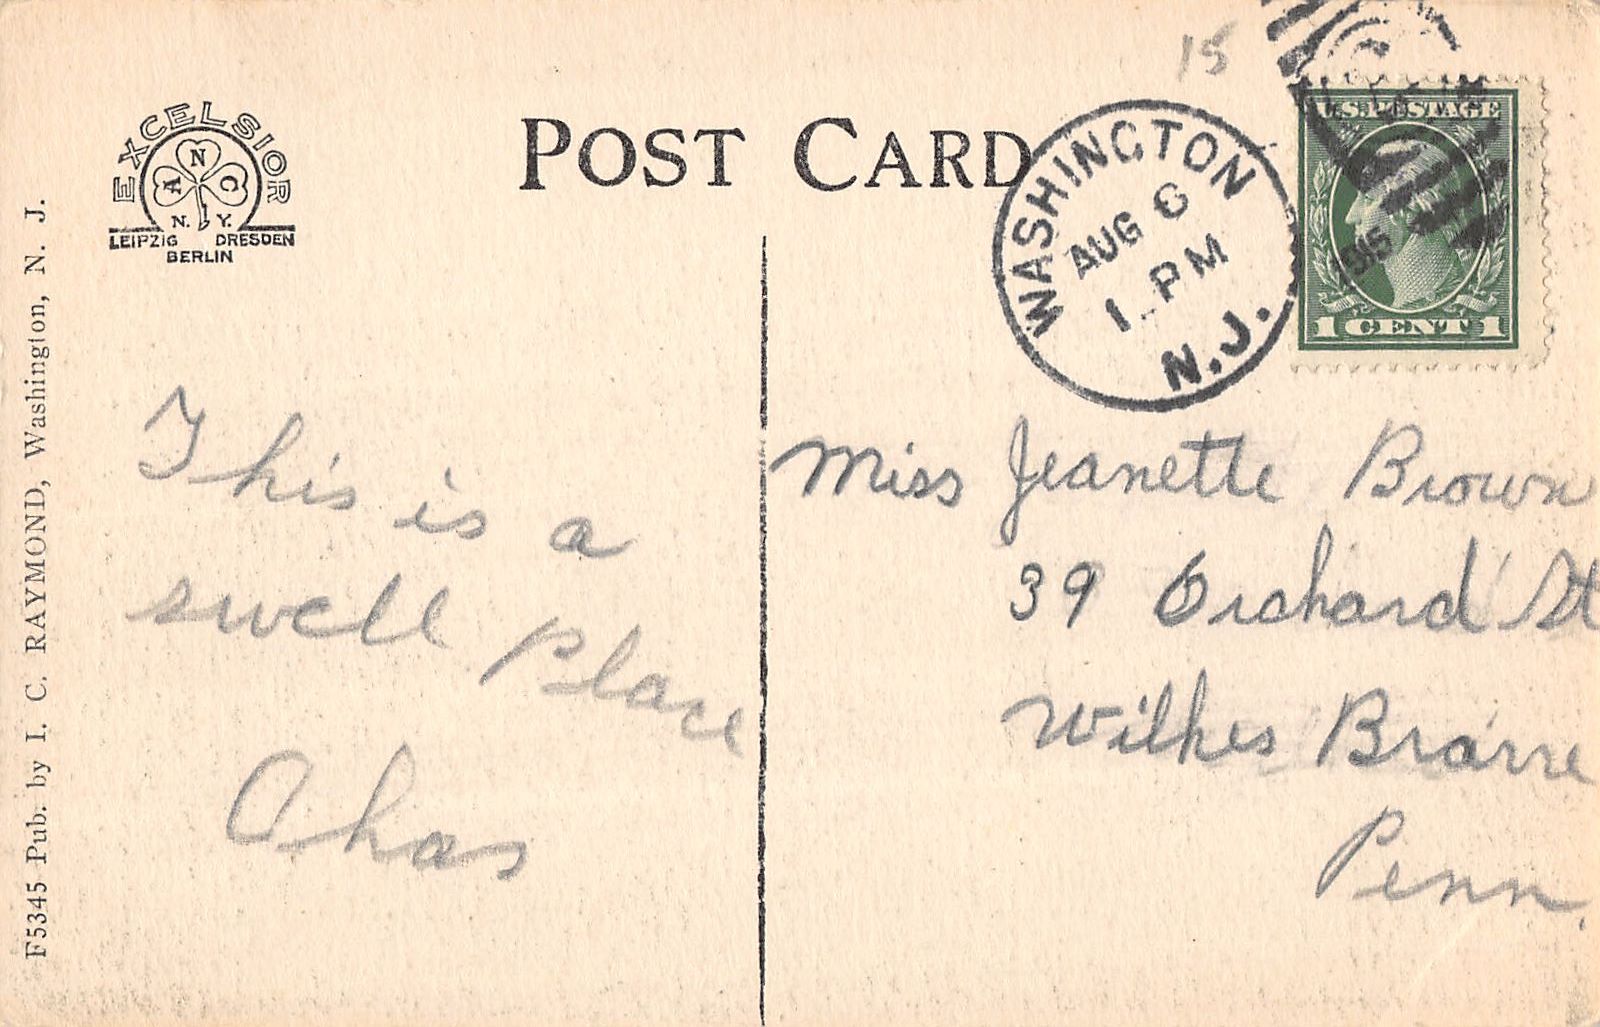 15
EXCELSIOR
N
A C
N. Y.
LEIPZIG DRESDEN
BERLIN
POST CARD
WASHINGTON
AUG 6
1 PM
1915
N.J.
U.S. POSTAGE
1 CENT 1
This is a
swell place
Chas
Miss Jeanette Brown
39 Orchard St
Wilkes Brarre
Penn.
F5345 Pub. by I. C. RAYMOND, Washington, N. J.